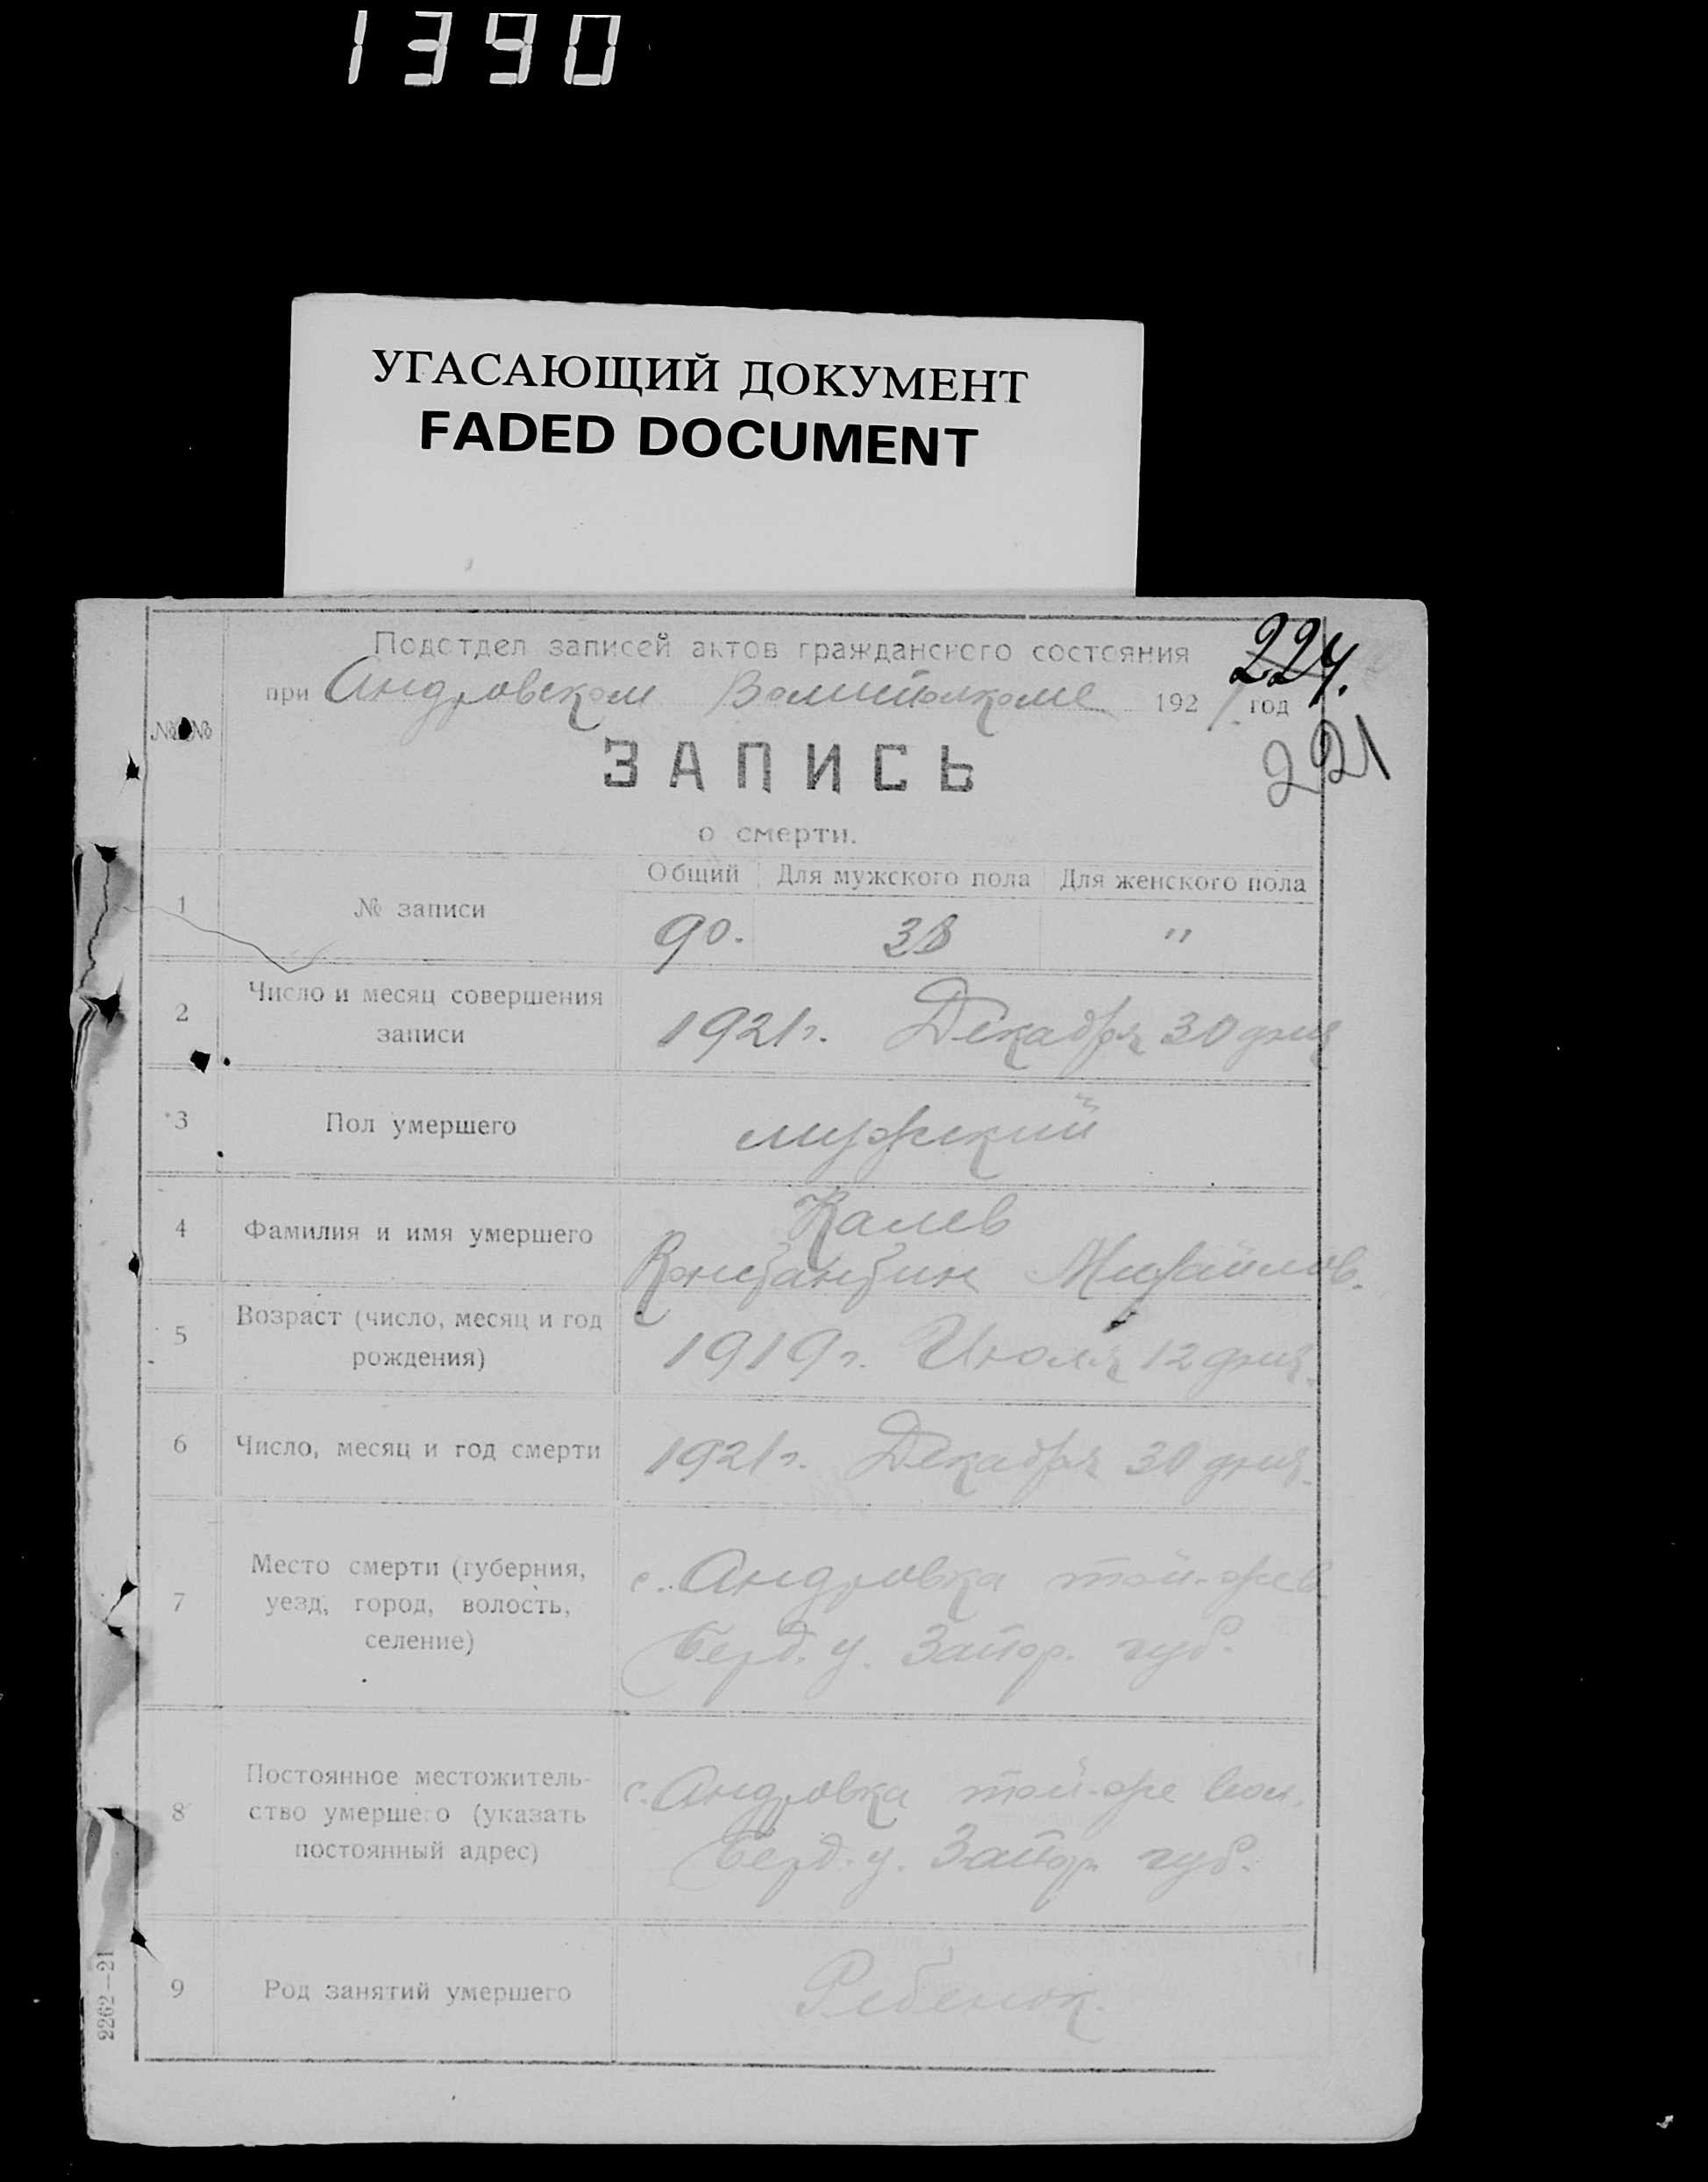 1390
УГАСАЮЩИЙ ДОКУМЕНТ
FADED DOCUMENT
224.
Подотдел записей актов гражданского состояния
при Андровском Волисполкоме 1921 год
221
№№
ЗАПИСЬ
о смерти.
Общий Для мужского пола Для женского пола
1 № записи 90. 38 "
2 Число и месяц совершения
записи
1921 г. Декабря 30 дня
3 Пол умершего мужский
4 Фамилия и имя умершего Калев
Константин Михайлов.
5 Возраст (число, месяц и год
рождения)
1919 г. Июля 12 дня.
6 Число, месяц и год смерти 1921 г. Декабря 30 дня.
7 Место смерти (губерния,
уезд, город, волость,
селение)
с. Андровка той-же в
Берд. у. Запор. губ.
8 Постоянное местожитель-
ство умершего (указать
постоянный адрес)
с. Андровка той-же вол.
Берд. у. Запор. губ.
9 Род занятий умершего Ребенок.
2262—21